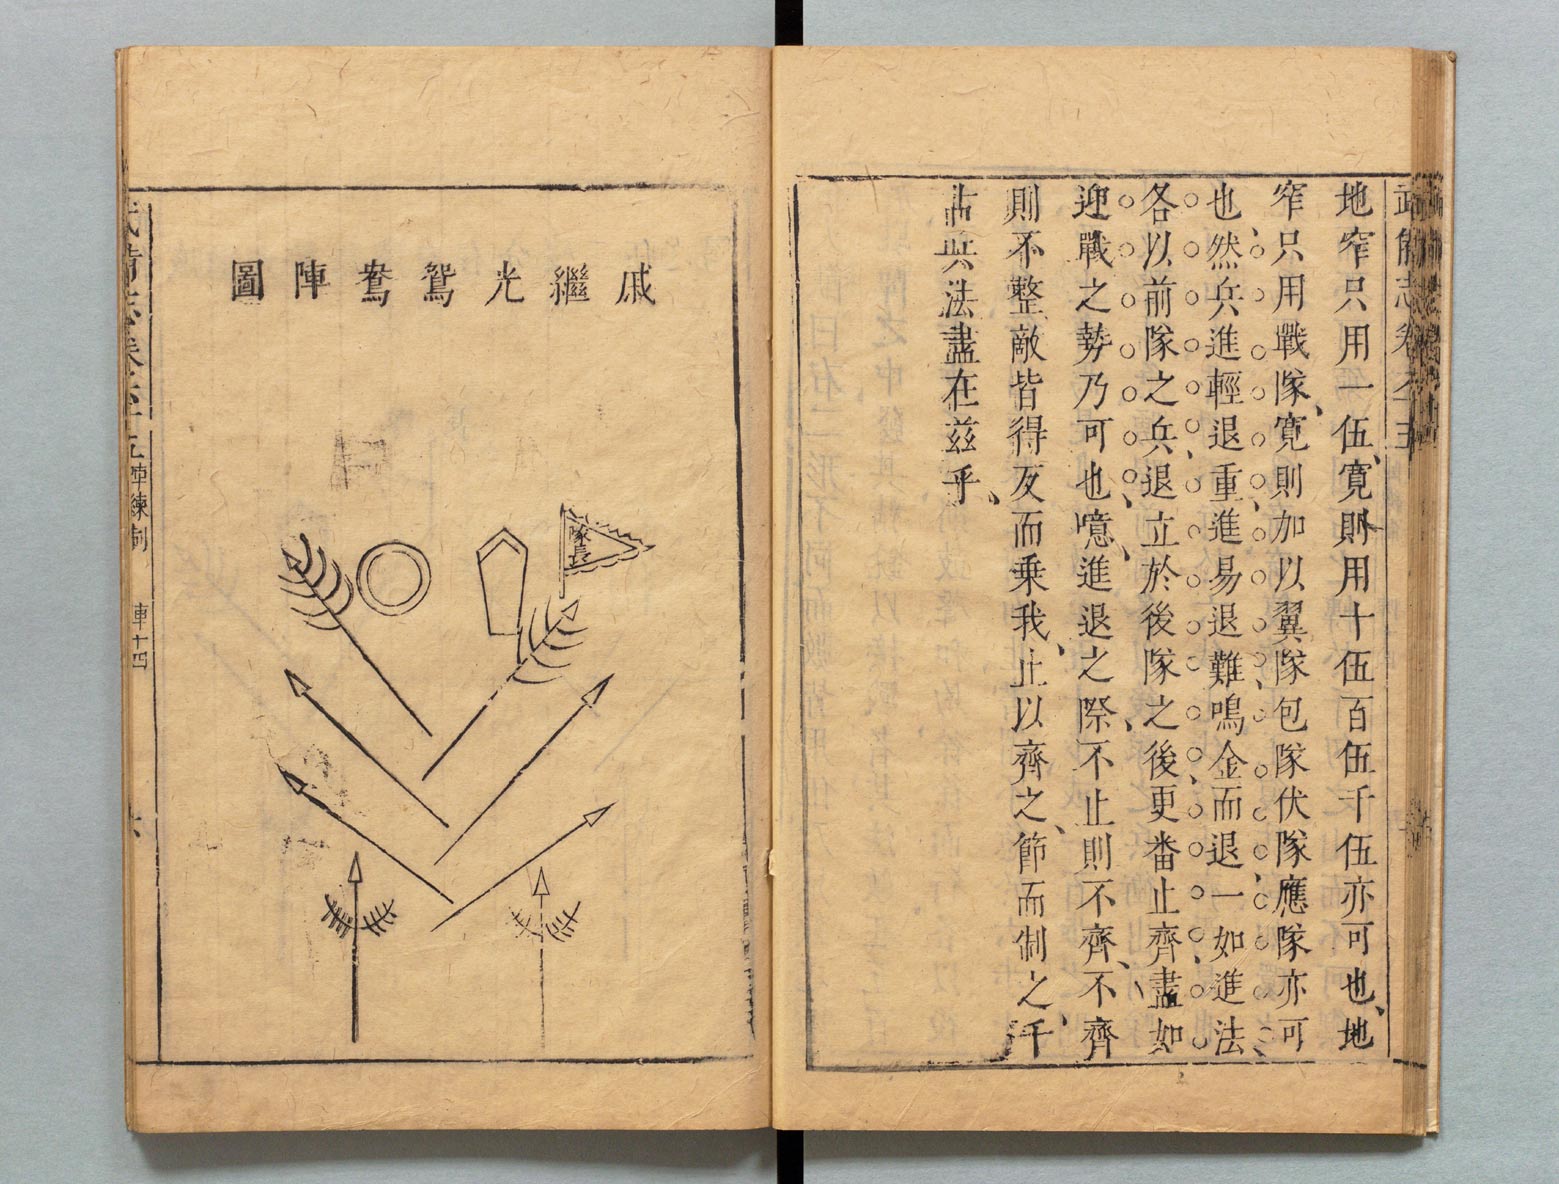 武備志卷
地窄只用一伍、寬則用十伍百伍千伍亦可也、地
窄只用戰隊、寬則加以翼隊包隊伏隊應隊亦可
也、然兵進輕退重、進易退難、鳴金而退、一如進法、
各以前隊之兵、退立於後隊之後、更番止齊、盡如
迎戰之勢乃可也、噫、進退之際、不止則不齊、不齊
則不整、敵皆得反而乗我、止以齊之、節而制之、千
古兵法盡在茲乎、
戚繼光鴛鴦陣圖
隊長
武備志卷六十五 陣練制 陣十四